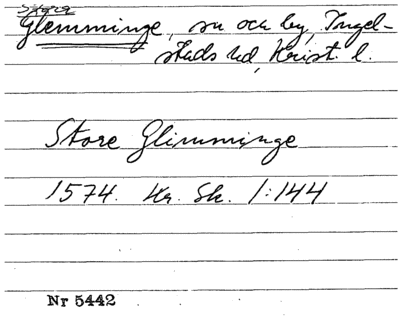 Glemminge, sn och by, Ingel-
stads hd, Krist. l.
Store Glimminge
1574. Kr. Sk. 1:144
Nr 5442